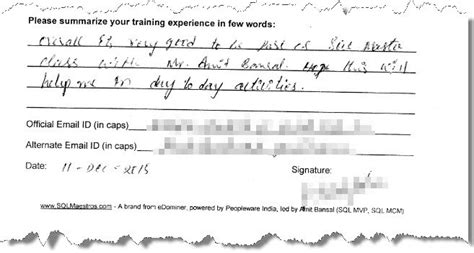 Please summarize your training experience in few words:
overall its very good to be part of SQL Master
class with Mr. Amit Bansal. Hope this will
help me in day to day activities.
Official Email ID (in caps)
Alternate Email ID (in caps)
Date: 11-Dec-2015
Signature:
www.SQLMaestros.com - A brand from eDominer, powered by Peopleware India, led by Amit Bansal (SQL MVP, SQL MCM)